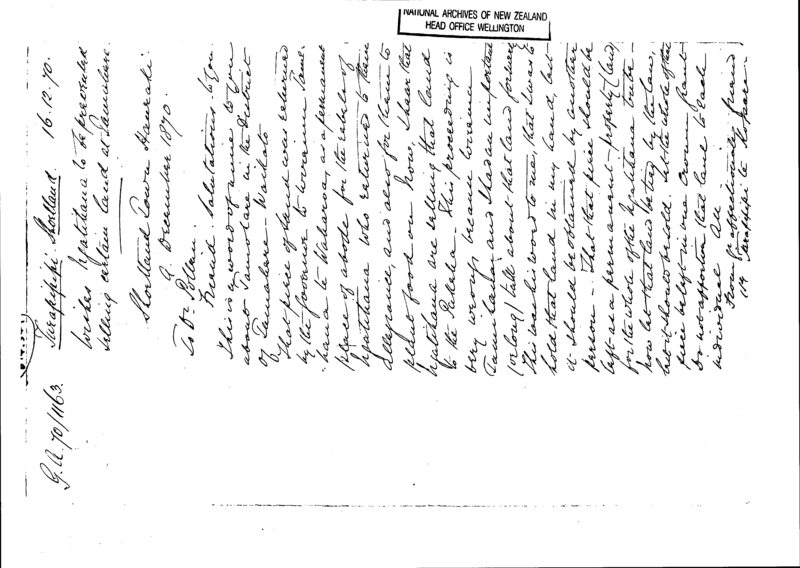 NATIONAL ARCHIVES OF NEW ZEALAND
HEAD OFFICE WELLINGTON
G.A. 70/1163.
Tarapipipi Shortland 16.12.70.
Wishes Ngatihaua to be prevented
selling certain land at Tamahere.
Shortland Town Hauraki.
9 December 1870.
To Dr Pollen.
Friend Salutations to you
This is a word of mine to you
about Tamahere in the District
of Tamahere Waikato
That piece of land was returned
by the Governor to Wiremu Tame-
hana te Waharoa, as a permanent
place of abode for the rebels of
Ngatihaua who returned to their
allegiance, and also for them to
plant food on. Now, I hear that
Ngatihaua are selling that land
to the Pakeha. This proceeding is
very wrong because Wiremu
Tamihana and I had an important
(or long) talk about that land formerly
This was his word to me that I was to
hold that land in my hand, lest
it should be obtained by another
person. That that piece should be
left as a permanent property (land)
for the whole of the Ngatihaua tribe
now let that land be tied by the law,
lest it should be sold. Let the whole of that
piece be kept in one Crown grant
Do not apportion that land to each
individual. All
From your affectionate friend
Tarapipipi te